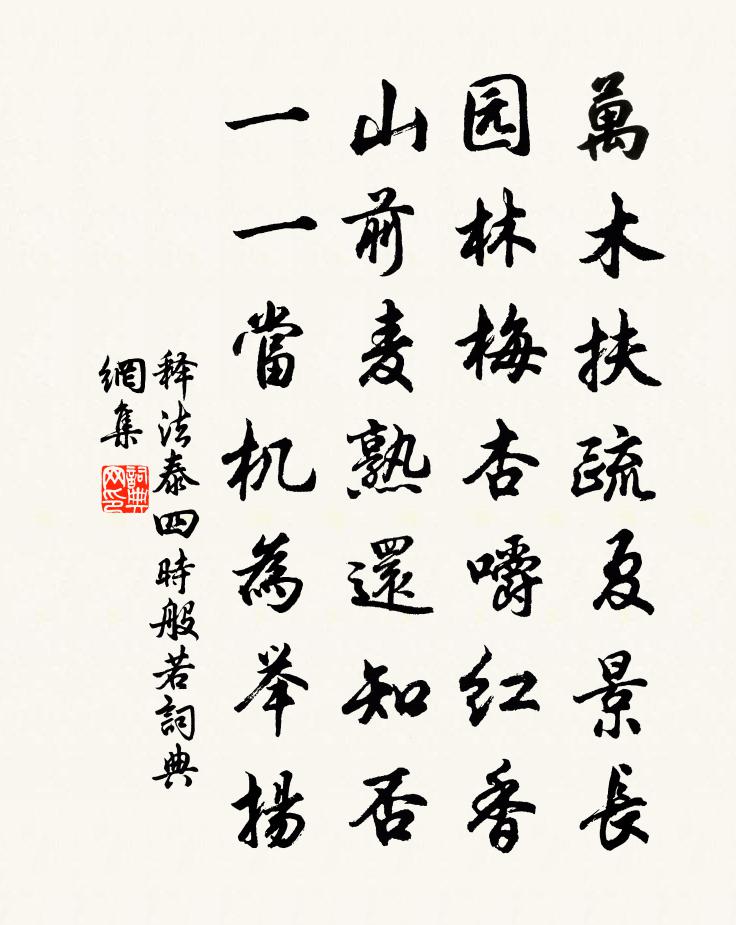 萬木扶疏夏景長
园林梅杏嚼红香
山前麦熟還知否
一一當机為举揚
释法泰四時般若詞典
網集
詞典网印